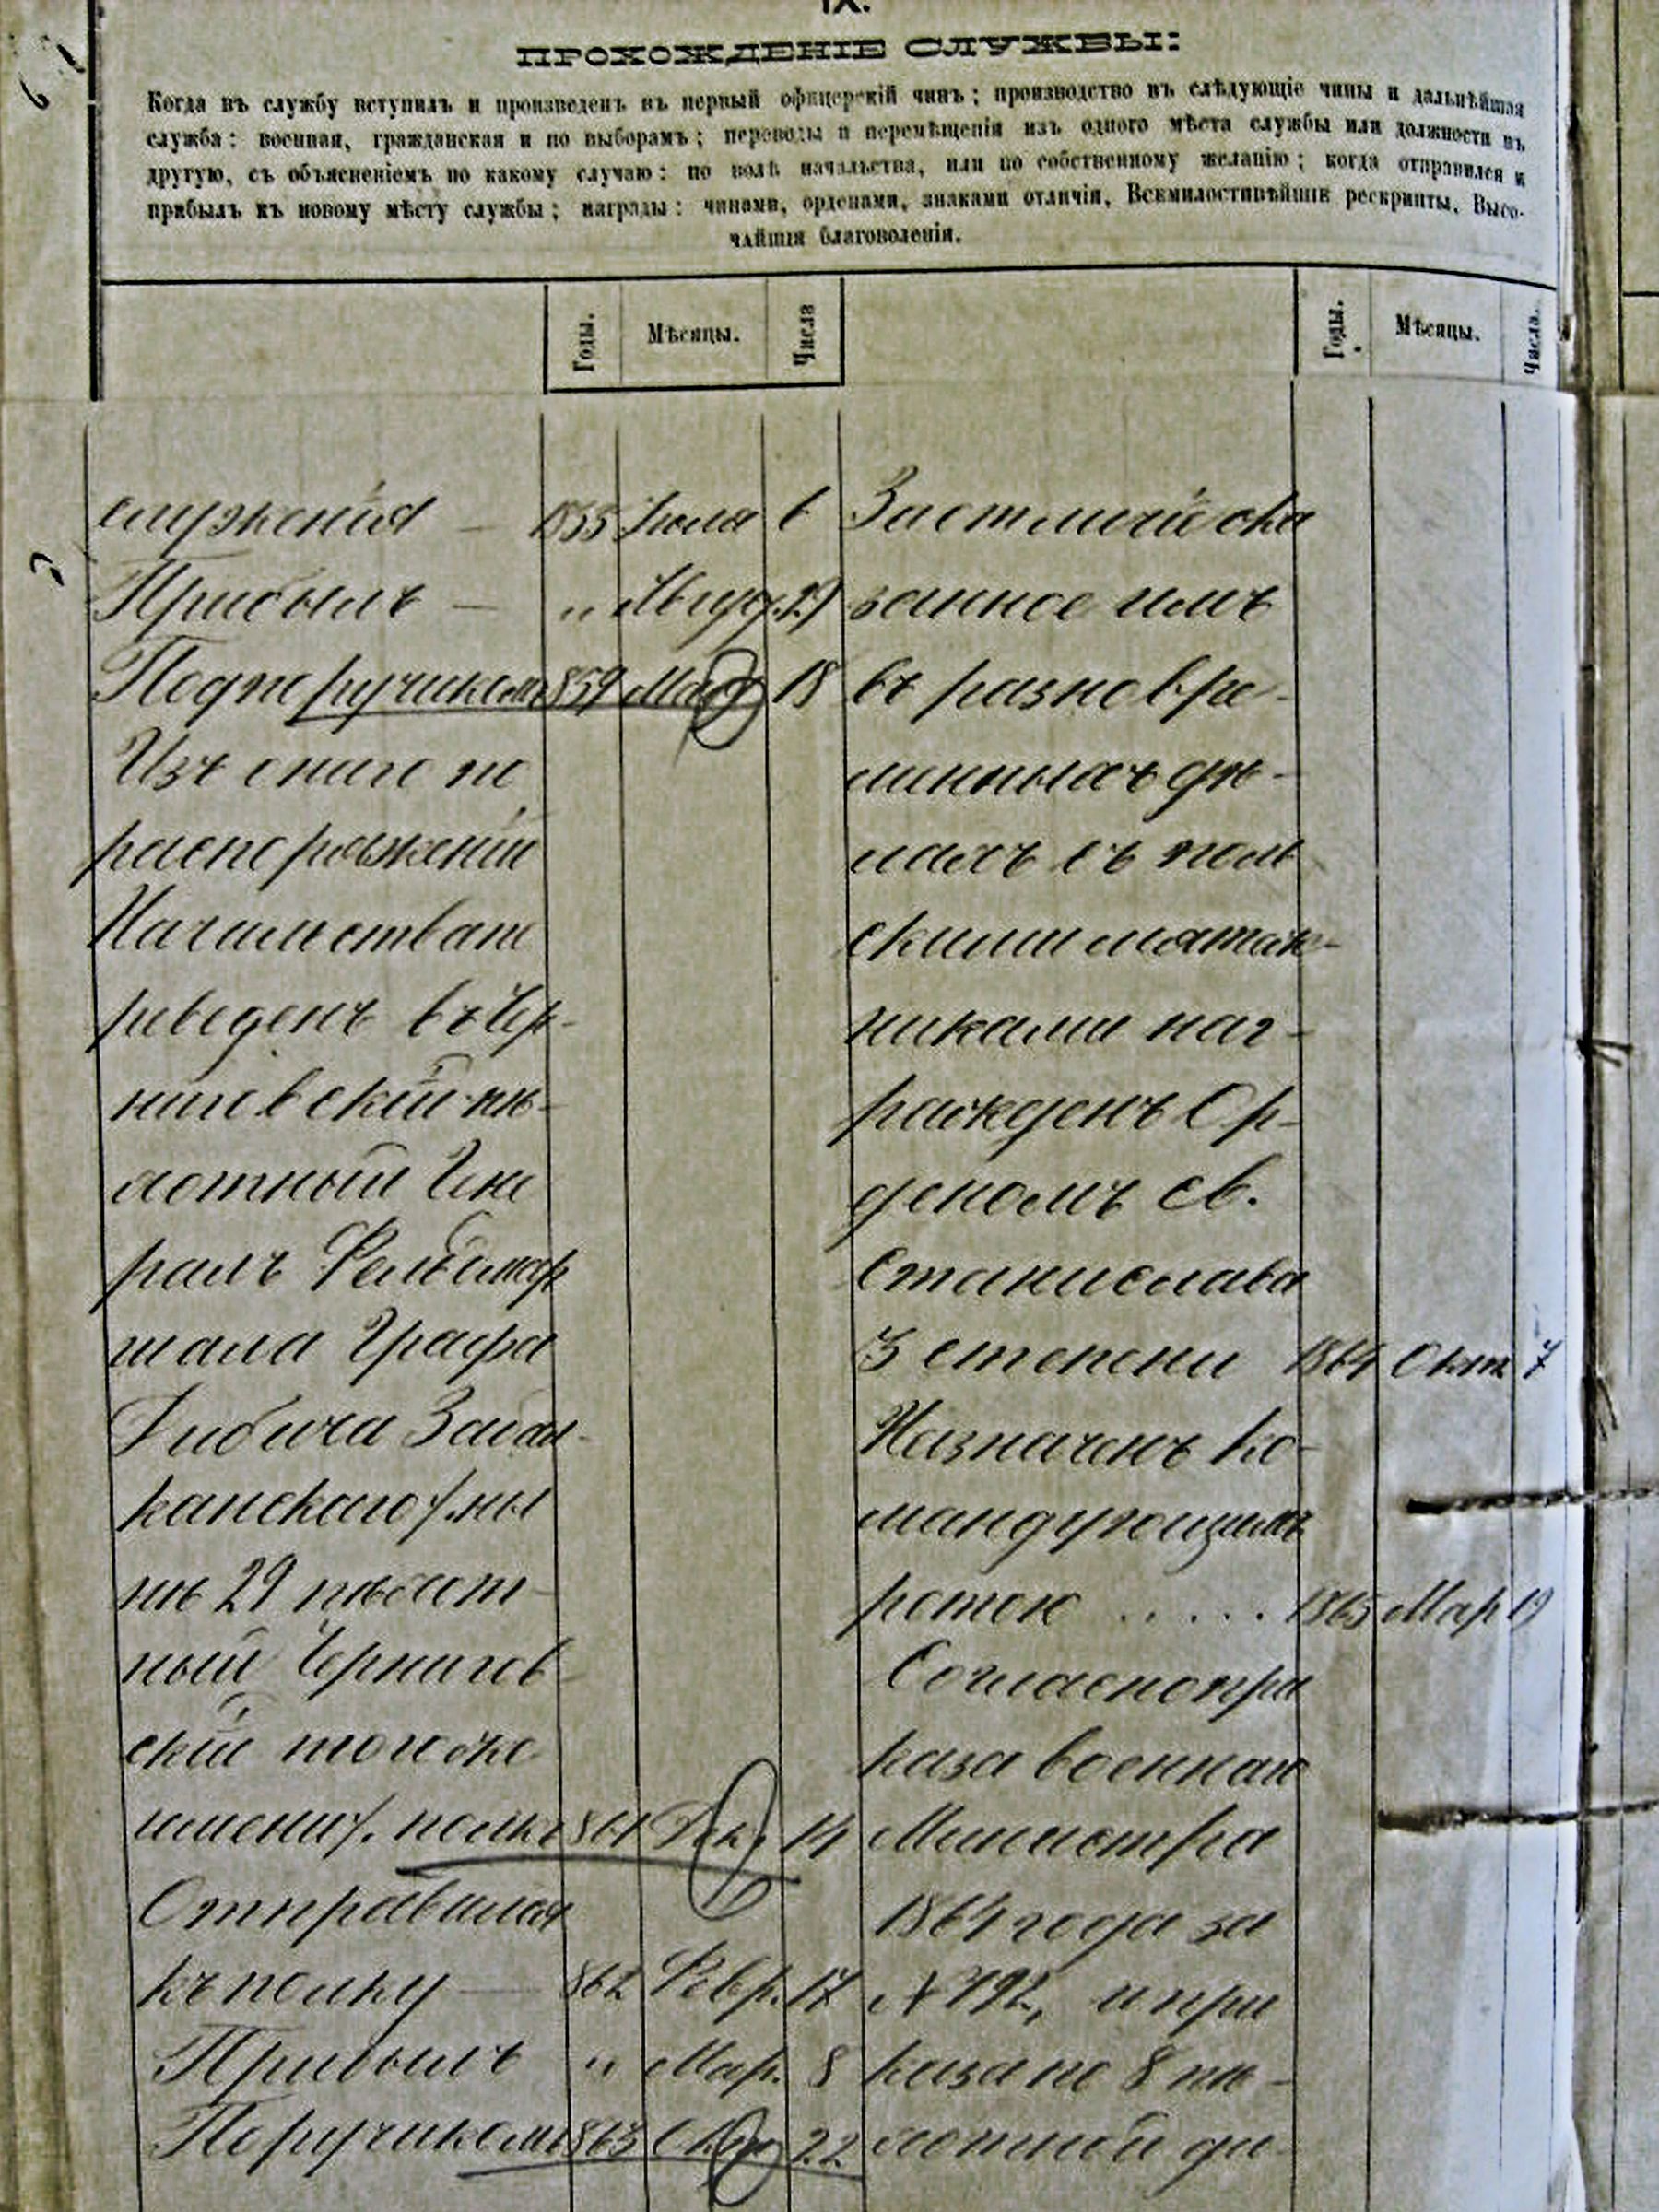 IX.
ПРОХОЖДЕНІЕ СЛУЖБЫ:
Когда въ службу вступилъ и произведенъ въ первый офицерскій чинъ; производство въ слѣдующіе чины и дальнѣйшая
служба: военная, гражданская и по выборамъ; переводы и перемѣщенія изъ одного мѣста службы или должности въ
другую, съ объясненіемъ по какому случаю: по волѣ начальства, или по собственному желанію; когда отправился и
прибылъ къ новому мѣсту службы; награды: чинами, орденами, знаками отличія, Всемилостивѣйшіе рескрипты, Высо-
чайшія благоволенія.
Годы.
Мѣсяцы.
Числа
Годы.
Мѣсяцы.
Числа.
служенія — 1855 Іюля 6
Прибылъ — „ Авгус. 29
Подпоручикомъ 859 Мая 18
Изъ онаго по
распоряженію
Начальства пе
реведенъ въ Чер-
ниговскій пѣ-
хотный Гене
ралъ Фельдмар
шала Графа
Дибича Забал-
канскаго /:ны
нѣ 29 пѣхот-
ный Чернигов
скій того же
имени/. полкъ 861 Дек. 14
Отправился
къ полку — 862 Февр. 17
Прибылъ „ Мар. 8
Поручикомъ 863 Окт 22
За отличіе ока
занное имъ
въ разновре-
менныхъ дѣ-
лахъ съ поль
скими мятеж-
никами наг-
ражденъ Ор-
деномъ Св.
Станислава
3 степени 1864 Окт 7
Назначенъ ко-
мандующимъ
ротою ..... 1865 Мар 19
Согласно при
каза Военнаго
Министра
1864 года за
№ 192, и при
каза по 8 пѣ-
хотной ди